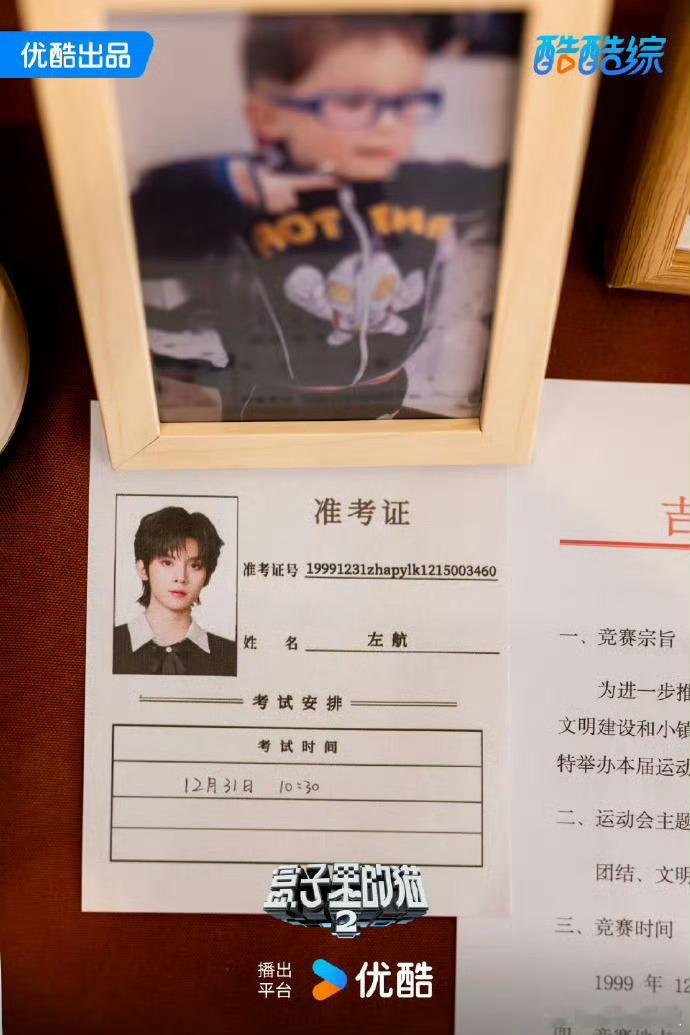 优酷出品
酷酷综
NOT THE
准考证
准考证号 19991231zhapylk1215003460
姓 名 左航
考试安排
考试时间
12月31日 10:30
吉
一、竞赛宗旨
为进一步推
文明建设和小镇
特举办本届运动
二、运动会主题
团结、文明
三、竞赛时间
1999 年 12
盒子里的猫
2
播出
平台
优酷